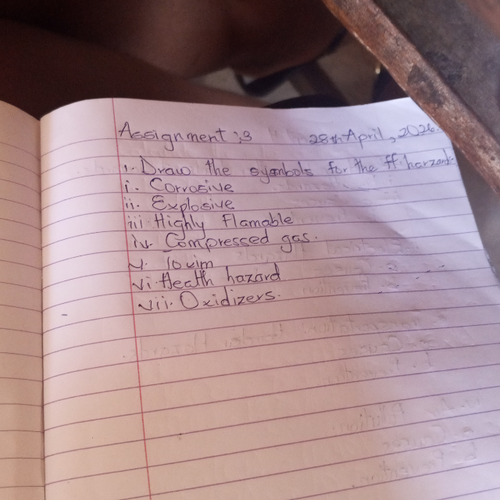 Assignment ;3 28th April, 2026.
1. Draw the symbols for the ff harzard.
i. Corrosive
ii. Explosive
iii Highly Flamable
iv. Compressed gas.
v.
vi. Health hazard
vii. Oxidizers.